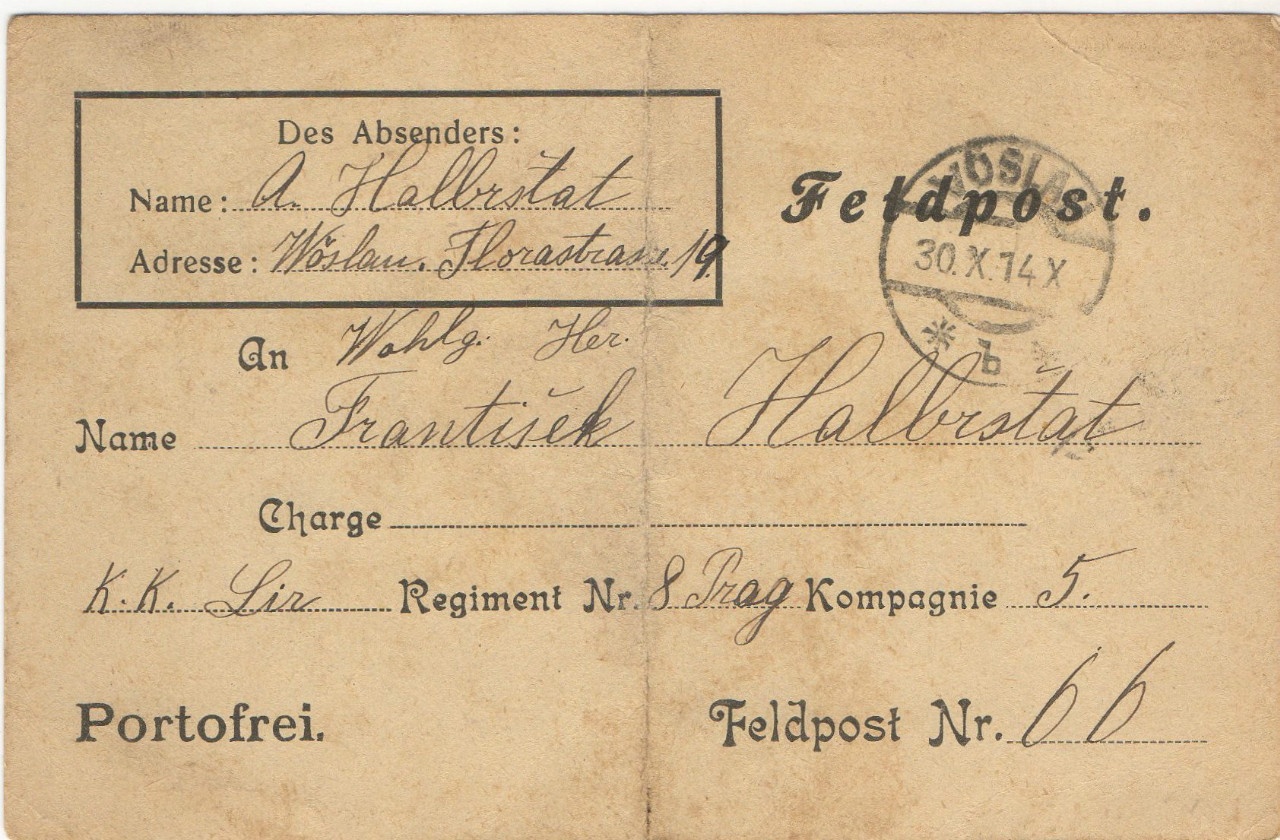 Des Absenders:
Name: A. Halbrštat
Adresse: Wöslau. Florastrasse 19
Feldpost.
VÖSLAU
30.X.14 X
* b *
An Wohlg. Her.
Name František Halbrštat
Charge
K.K. Lir Regiment Nr. 8 Prag Kompagnie 5.
Portofrei.
Feldpost Nr. 66